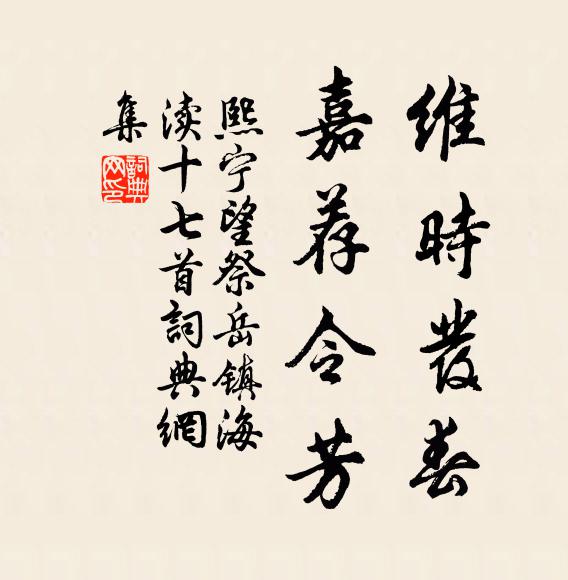 維時發春
嘉荐令芳
熙宁望祭岳镇海
渎十七首詞典網
集
詞典網印